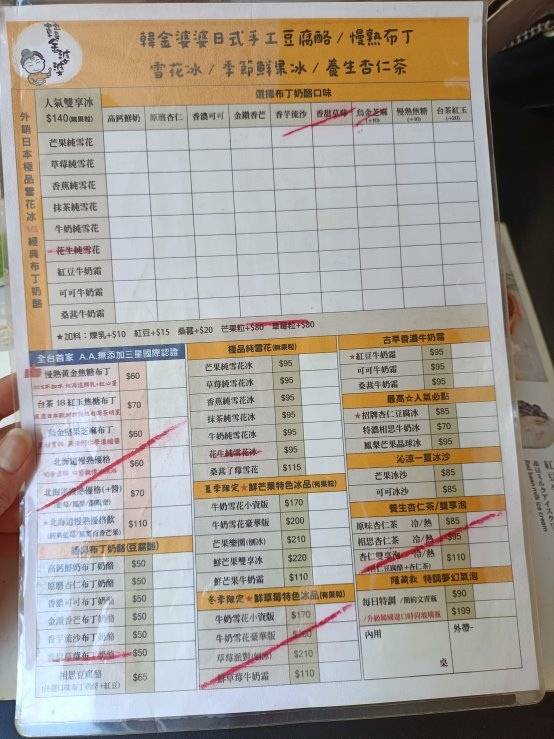 韓金婆婆
韓金婆婆日式手工豆腐酪/慢熱布丁
雪花冰/季節鮮果冰/養生杏仁茶
外銷日本極品雪花冰VS經典布丁奶酪
人氣雙享冰
$140(無果粒)
選擇布丁奶酪口味
高鈣鮮奶 原磨杏仁 香濃可可 金鑽香芒 香芋流沙 香甜草莓 烏金芝麻(+10) 慢熱焦糖(+10) 台茶紅玉(+20)
芒果純雪花
草莓純雪花
香蕉純雪花
抹茶純雪花
牛奶純雪花
花生純雪花
紅豆牛奶霜
可可牛奶霜
桑葚牛奶霜
★加料:煉乳+$10 紅豆+$15 桑葚+$20 芒果粒+$80 草莓粒+$80
全台首家 A.A.無添加三星國際認證
慢熱黃金焦糖布丁 $60
台茶18紅玉焦糖布丁 $70
烏金堅果芝麻布丁 $60
北海道慢熱優格 $60
北海道慢熱優格(+醬) $70
★北海道慢熱優格飲 $110
經典布丁奶酪(豆腐酪)
高鈣鮮奶布丁奶酪 $50
原磨杏仁布丁奶酪 $50
香濃可可布丁奶酪 $50
金鑽香芒布丁奶酪 $50
香芋流沙布丁奶酪 $50
香甜草莓布丁奶酪 $50
相思豆腐酪 $65
(任選口味布丁奶酪+紅豆)
極品純雪花(無果粒)
芒果純雪花冰 $95
草莓純雪花冰 $95
香蕉純雪花冰 $95
抹茶純雪花冰 $95
牛奶純雪花冰 $95
花生純雪花冰 $95
桑葚了莓花冰 $115
夏季限定★鮮芒果特色冰品(有果粒)
牛奶雪花小資版 $170
牛奶雪花豪華版 $200
芒果樂園(剉冰) $210
鮮芒果雙享冰 $220
鮮芒果牛奶霜 $110
冬季限定★鮮草莓特色冰品(有果粒)
牛奶雪花小資版 $170
牛奶雪花豪華版
草莓派對(剉冰) $210
鮮草莓牛奶霜 $110
古早香濃牛奶霜
★紅豆牛奶霜 $95
可可牛奶霜 $95
桑葚牛奶霜 $95
最高☆人氣必點
★招牌杏仁豆腐冰 $85
特濃相思牛奶冰 $70
鳳梨芒果晶球冰 $95
沁涼一夏冰沙
芒果冰沙 $85
可可冰沙 $85
養生杏仁茶/雙享泡
原味杏仁茶 冷/熱 $85
相思杏仁茶 冷/熱 $95
杏仁雙享泡 冷/熱 $110
(杏仁豆腐酪+杏仁茶)
隱藏飲 特調夢幻氣泡
每日特調/簡約文青瓶 $90
$199
內用
外帶-
桌